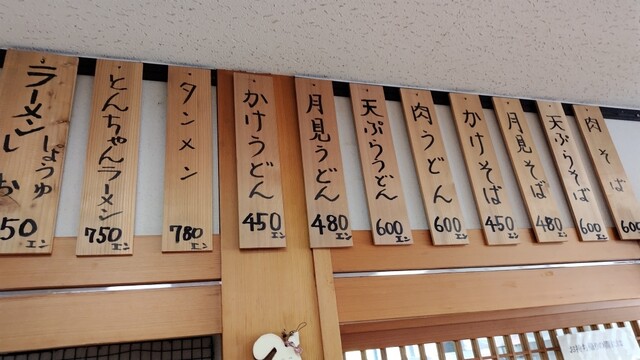 ラーメン
しょうゆ
しお
50エン
とんちゃんラーメン
750エン
タンメン
780エン
かけうどん
450エン
月見うどん
480エン
天ぷらうどん
600エン
肉うどん
600エン
かけそば
450エン
月見そば
480エン
天ぷらそば
600エン
肉そば
600